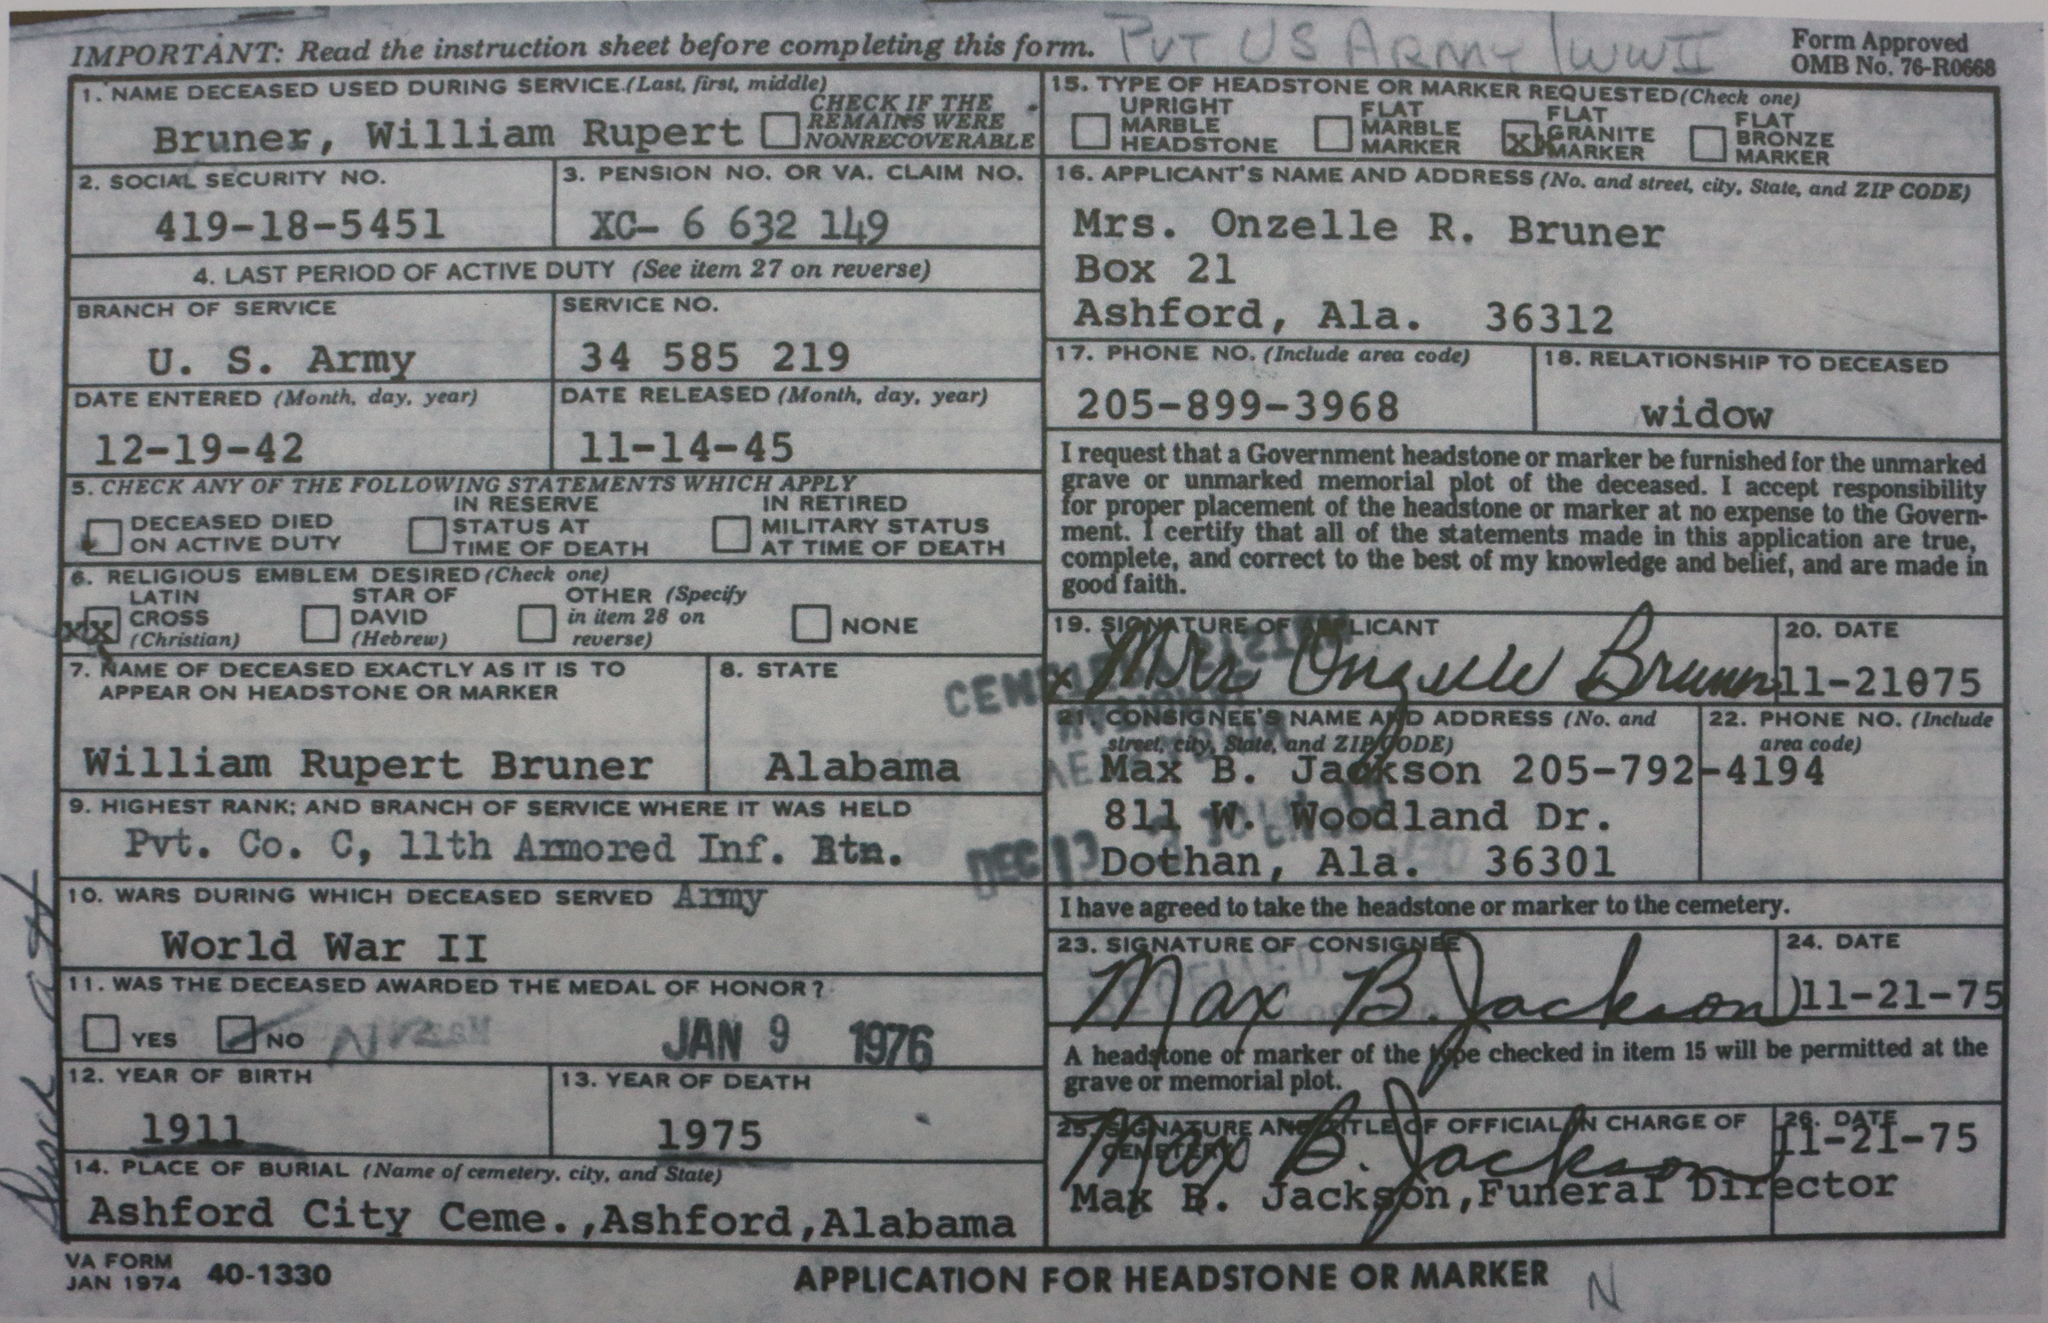 IMPORTANT: Read the instruction sheet before completing this form.
PVT US ARMY WWII
Form Approved
OMB No. 76-R0668
1. NAME DECEASED USED DURING SERVICE (Last, first, middle)
Bruner, William Rupert
CHECK IF THE
REMAINS WERE
NONRECOVERABLE
2. SOCIAL SECURITY NO.
419-18-5451
3. PENSION NO. OR VA. CLAIM NO.
XC- 6 632 149
4. LAST PERIOD OF ACTIVE DUTY (See item 27 on reverse)
BRANCH OF SERVICE
U. S. Army
SERVICE NO.
34 585 219
DATE ENTERED (Month, day, year)
12-19-42
DATE RELEASED (Month, day, year)
11-14-45
5. CHECK ANY OF THE FOLLOWING STATEMENTS WHICH APPLY
DECEASED DIED
ON ACTIVE DUTY
IN RESERVE
STATUS AT
TIME OF DEATH
IN RETIRED
MILITARY STATUS
AT TIME OF DEATH
6. RELIGIOUS EMBLEM DESIRED (Check one)
XX
LATIN
CROSS
(Christian)
STAR OF
DAVID
(Hebrew)
OTHER (Specify
in item 28 on
reverse)
NONE
7. NAME OF DECEASED EXACTLY AS IT IS TO
APPEAR ON HEADSTONE OR MARKER
William Rupert Bruner
8. STATE
Alabama
9. HIGHEST RANK; AND BRANCH OF SERVICE WHERE IT WAS HELD
Pvt. Co. C, 11th Armored Inf. Btn.
Army
10. WARS DURING WHICH DECEASED SERVED
World War II
11. WAS THE DECEASED AWARDED THE MEDAL OF HONOR?
YES
NO
JAN 9 1976
12. YEAR OF BIRTH
1911
13. YEAR OF DEATH
1975
14. PLACE OF BURIAL (Name of cemetery, city, and State)
Ashford City Ceme.,Ashford,Alabama
15. TYPE OF HEADSTONE OR MARKER REQUESTED (Check one)
UPRIGHT
MARBLE
HEADSTONE
FLAT
MARBLE
MARKER
X
FLAT
GRANITE
MARKER
FLAT
BRONZE
MARKER
16. APPLICANT'S NAME AND ADDRESS (No. and street, city, State, and ZIP CODE)
Mrs. Onzelle R. Bruner
Box 21
Ashford, Ala. 36312
17. PHONE NO. (Include area code)
205-899-3968
18. RELATIONSHIP TO DECEASED
widow
I request that a Government headstone or marker be furnished for the unmarked
grave or unmarked memorial plot of the deceased. I accept responsibility
for proper placement of the headstone or marker at no expense to the Govern-
ment. I certify that all of the statements made in this application are true,
complete, and correct to the best of my knowledge and belief, and are made in
good faith.
19. SIGNATURE OF APPLICANT
x Mrs Onzelle Bruner
20. DATE
11-21075
21. CONSIGNEE'S NAME AND ADDRESS (No. and
street, city, State, and ZIP CODE)
22. PHONE NO. (Include
area code)
Max B. Jackson 205-792-4194
811 W. Woodland Dr.
Dothan, Ala. 36301
DEC
I have agreed to take the headstone or marker to the cemetery.
23. SIGNATURE OF CONSIGNEE
Max B. Jackson
24. DATE
11-21-75
A headstone or marker of the type checked in item 15 will be permitted at the
grave or memorial plot.
25. SIGNATURE AND TITLE OF OFFICIAL IN CHARGE OF
CEMETERY
Max B. Jackson
Max B. Jackson,Funeral Director
26. DATE
11-21-75
VA FORM
JAN 1974 40-1330
APPLICATION FOR HEADSTONE OR MARKER
N